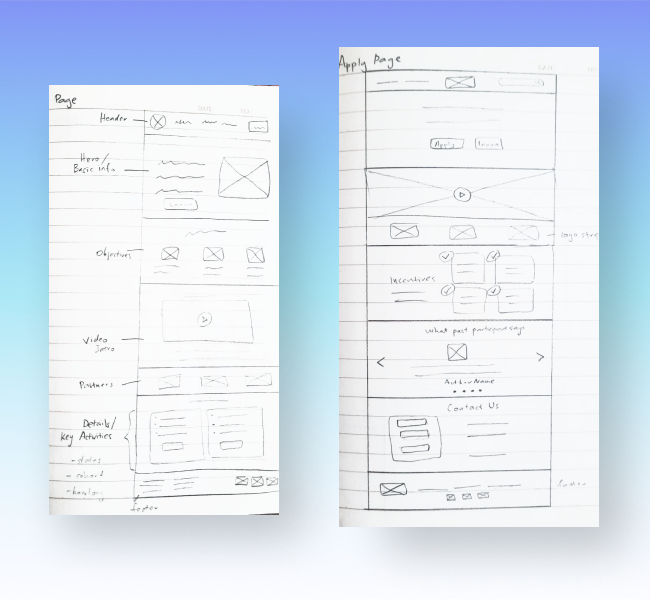 Page
Header
Hero/
Basic Info
Objectives
Video
Intro
Partners
Details/
Key Activities
- dates
footer
Apply Page
Apply
Logo
Incentives
What past participants say
Author Name
Contact Us
footer